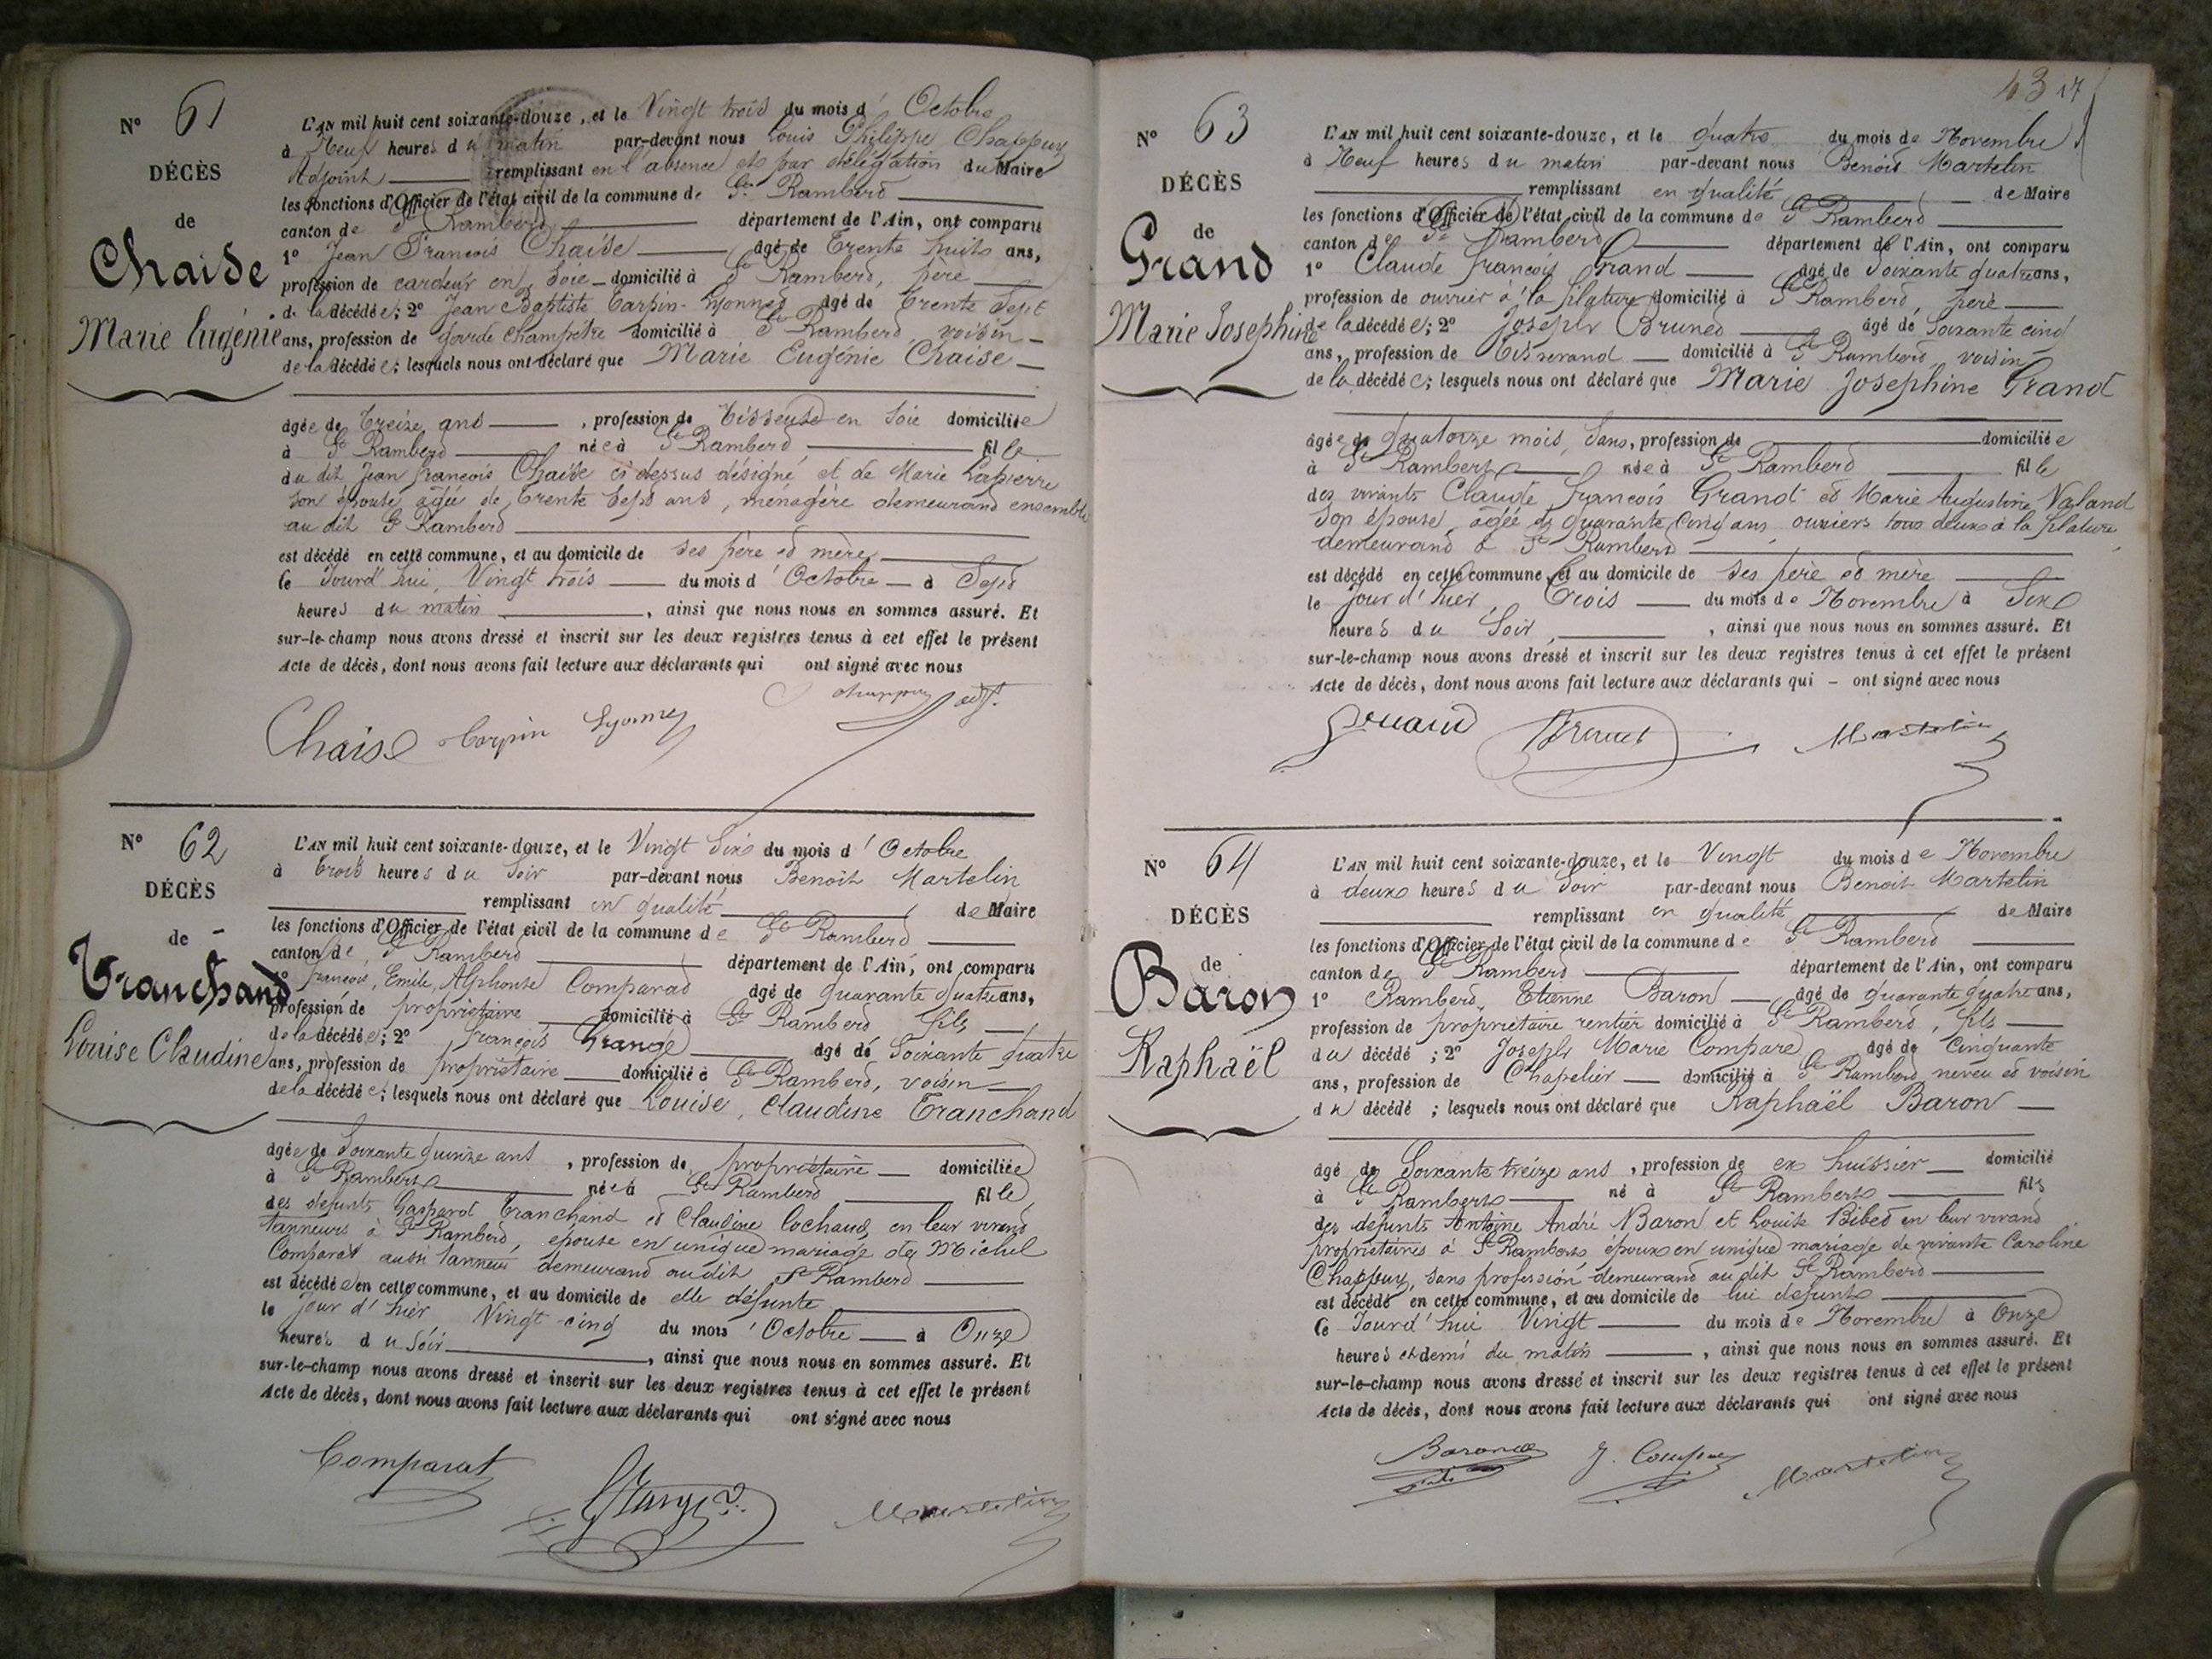 N° 61
DÉCÈS
de
Chaise
Marie Eugénie
L'AN mil huit cent soixante-douze, et le Vingt trois du mois d'Octobre
à Neuf heures du matin par-devant nous Louis Philippe Chappuy
Adjoint remplissant en l'absence et par délégation du Maire
les fonctions d'Officier de l'état civil de la commune de St Rambert
canton de St Rambert département de l'Ain, ont comparu
1° Jean François Chaise âgé de Trente huit ans,
profession de cardeur en soie domicilié à St Rambert, père
de la décédée; 2° Jean Baptiste Carpin-Lyonnet âgé de trente sept
ans, profession de garde champêtre domicilié à St Rambert voisin
de la décédée; lesquels nous ont déclaré que Marie Eugénie Chaise
âgée de treize ans, profession de Tisseuse en soie domiciliée
à St Rambert née à St Rambert fille
du dit Jean François Chaise ci dessus désigné et de Marie Lapierre
son épouse âgée de trente sept ans, ménagère demeurant ensemble
au dit St Rambert
est décédé en cette commune, et au domicile de ses père et mère
le Jourd'hui, Vingt trois du mois d'Octobre à Sept
heures du matin, ainsi que nous nous en sommes assuré. Et
sur-le-champ nous avons dressé et inscrit sur les deux registres tenus à cet effet le présent
Acte de décès, dont nous avons fait lecture aux déclarants qui ont signé avec nous
Chaise Carpin Lyonnet Chappuy adjt.
N° 62
DÉCÈS
de
Tranchand
Louise Claudine
L'AN mil huit cent soixante-douze, et le Vingt Six du mois d'Octobre
à trois heures du Soir par-devant nous Benoit Martelin
remplissant en qualité de Maire
les fonctions d'Officier de l'état civil de la commune de St Rambert
canton de St Rambert département de l'Ain, ont comparu
1° François, Emile, Alphonse Comparat âgé de quarante quatre ans,
profession de propriétaire domicilié à St Rambert fils
de la décédée; 2° François Grange âgé de Soixante quatre
ans, profession de propriétaire domicilié à St Rambert, voisin
de la décédée; lesquels nous ont déclaré que Louise, Claudine Tranchand
âgée de Soixante quinze ans, profession de propriétaire domiciliée
à St Rambert née à St Rambert fille
des défunts Gaspard Tranchand et Claudine Cochaud, en leur vivant
tanneurs à St Rambert, épouse en unique mariage de Michel
Comparat aussi tanneur demeurant audit St Rambert
est décédée en cette commune, et au domicile de elle défunte
le jour d'hier Vingt-cinq du mois d'Octobre à Onze
heures du Soir, ainsi que nous nous en sommes assuré. Et
sur-le-champ nous avons dressé et inscrit sur les deux registres tenus à cet effet le présent
Acte de décès, dont nous avons fait lecture aux déclarants qui ont signé avec nous
Comparat Grange Martelin
43 17
N° 63
DÉCÈS
de
Grand
Marie Josephine
L'AN mil huit cent soixante-douze, et le quatre du mois de Novembre
à Neuf heures du matin par-devant nous Benoit Martelin
remplissant en qualité de Maire
les fonctions d'Officier de l'état civil de la commune de St Rambert
canton de St Rambert département de l'Ain, ont comparu
1° Claude François Grand âgé de Soixante quatre ans,
profession de ouvrier à la filature domicilié à St Rambert, père
de la décédée; 2° Joseph Brunet âgé de Soixante cinq
ans, profession de tisserand domicilié à St Rambert, voisin
de la décédée; lesquels nous ont déclaré que Marie Josephine Grand
âgée de quatorze mois, sans, profession de domiciliée
à St Rambert née à St Rambert fille
des vivants Claude François Grand et Marie Augustine Valand
son épouse, âgée de quarante cinq ans, ouvriers tous deux à la filature
demeurant à St Rambert
est décédé en cette commune, et au domicile de ses père et mère
le jour d'hier, Trois du mois de Novembre à Six
heures du Soir, ainsi que nous nous en sommes assuré. Et
sur-le-champ nous avons dressé et inscrit sur les deux registres tenus à cet effet le présent
Acte de décès, dont nous avons fait lecture aux déclarants qui – ont signé avec nous
Brunet Martelin
N° 64
DÉCÈS
de
Baron
Raphaël
L'AN mil huit cent soixante-douze, et le Vingt du mois de Novembre
à deux heures du Soir par-devant nous Benoit Martelin
remplissant en qualité de Maire
les fonctions d'Officier de l'état civil de la commune de St Rambert
canton de St Rambert département de l'Ain, ont comparu
1° Rambert, Etienne Baron âgé de quarante quatre ans,
profession de propriétaire rentier domicilié à St Rambert, fils
du décédé; 2° Joseph Marie Compare âgé de Cinquante
ans, profession de Chapelier domicilié à St Rambert neveu et voisin
du décédé; lesquels nous ont déclaré que Raphaël Baron
âgé de Soixante treize ans, profession de ex huissier domicilié
à St Rambert né à St Rambert fils
des défunts Antoine André Baron et Louise Bibet en leur vivant
propriétaires à St Rambert époux en unique mariage de vivante Caroline
Chappuy, sans profession demeurant au dit St Rambert
est décédé en cette commune, et au domicile de lui défunt
le Jourd'hui Vingt du mois de Novembre à Onze
heures et demi du matin, ainsi que nous nous en sommes assuré. Et
sur-le-champ nous avons dressé et inscrit sur les deux registres tenus à cet effet le présent
Acte de décès, dont nous avons fait lecture aux déclarants qui ont signé avec nous
Baron J. Compare Martelin